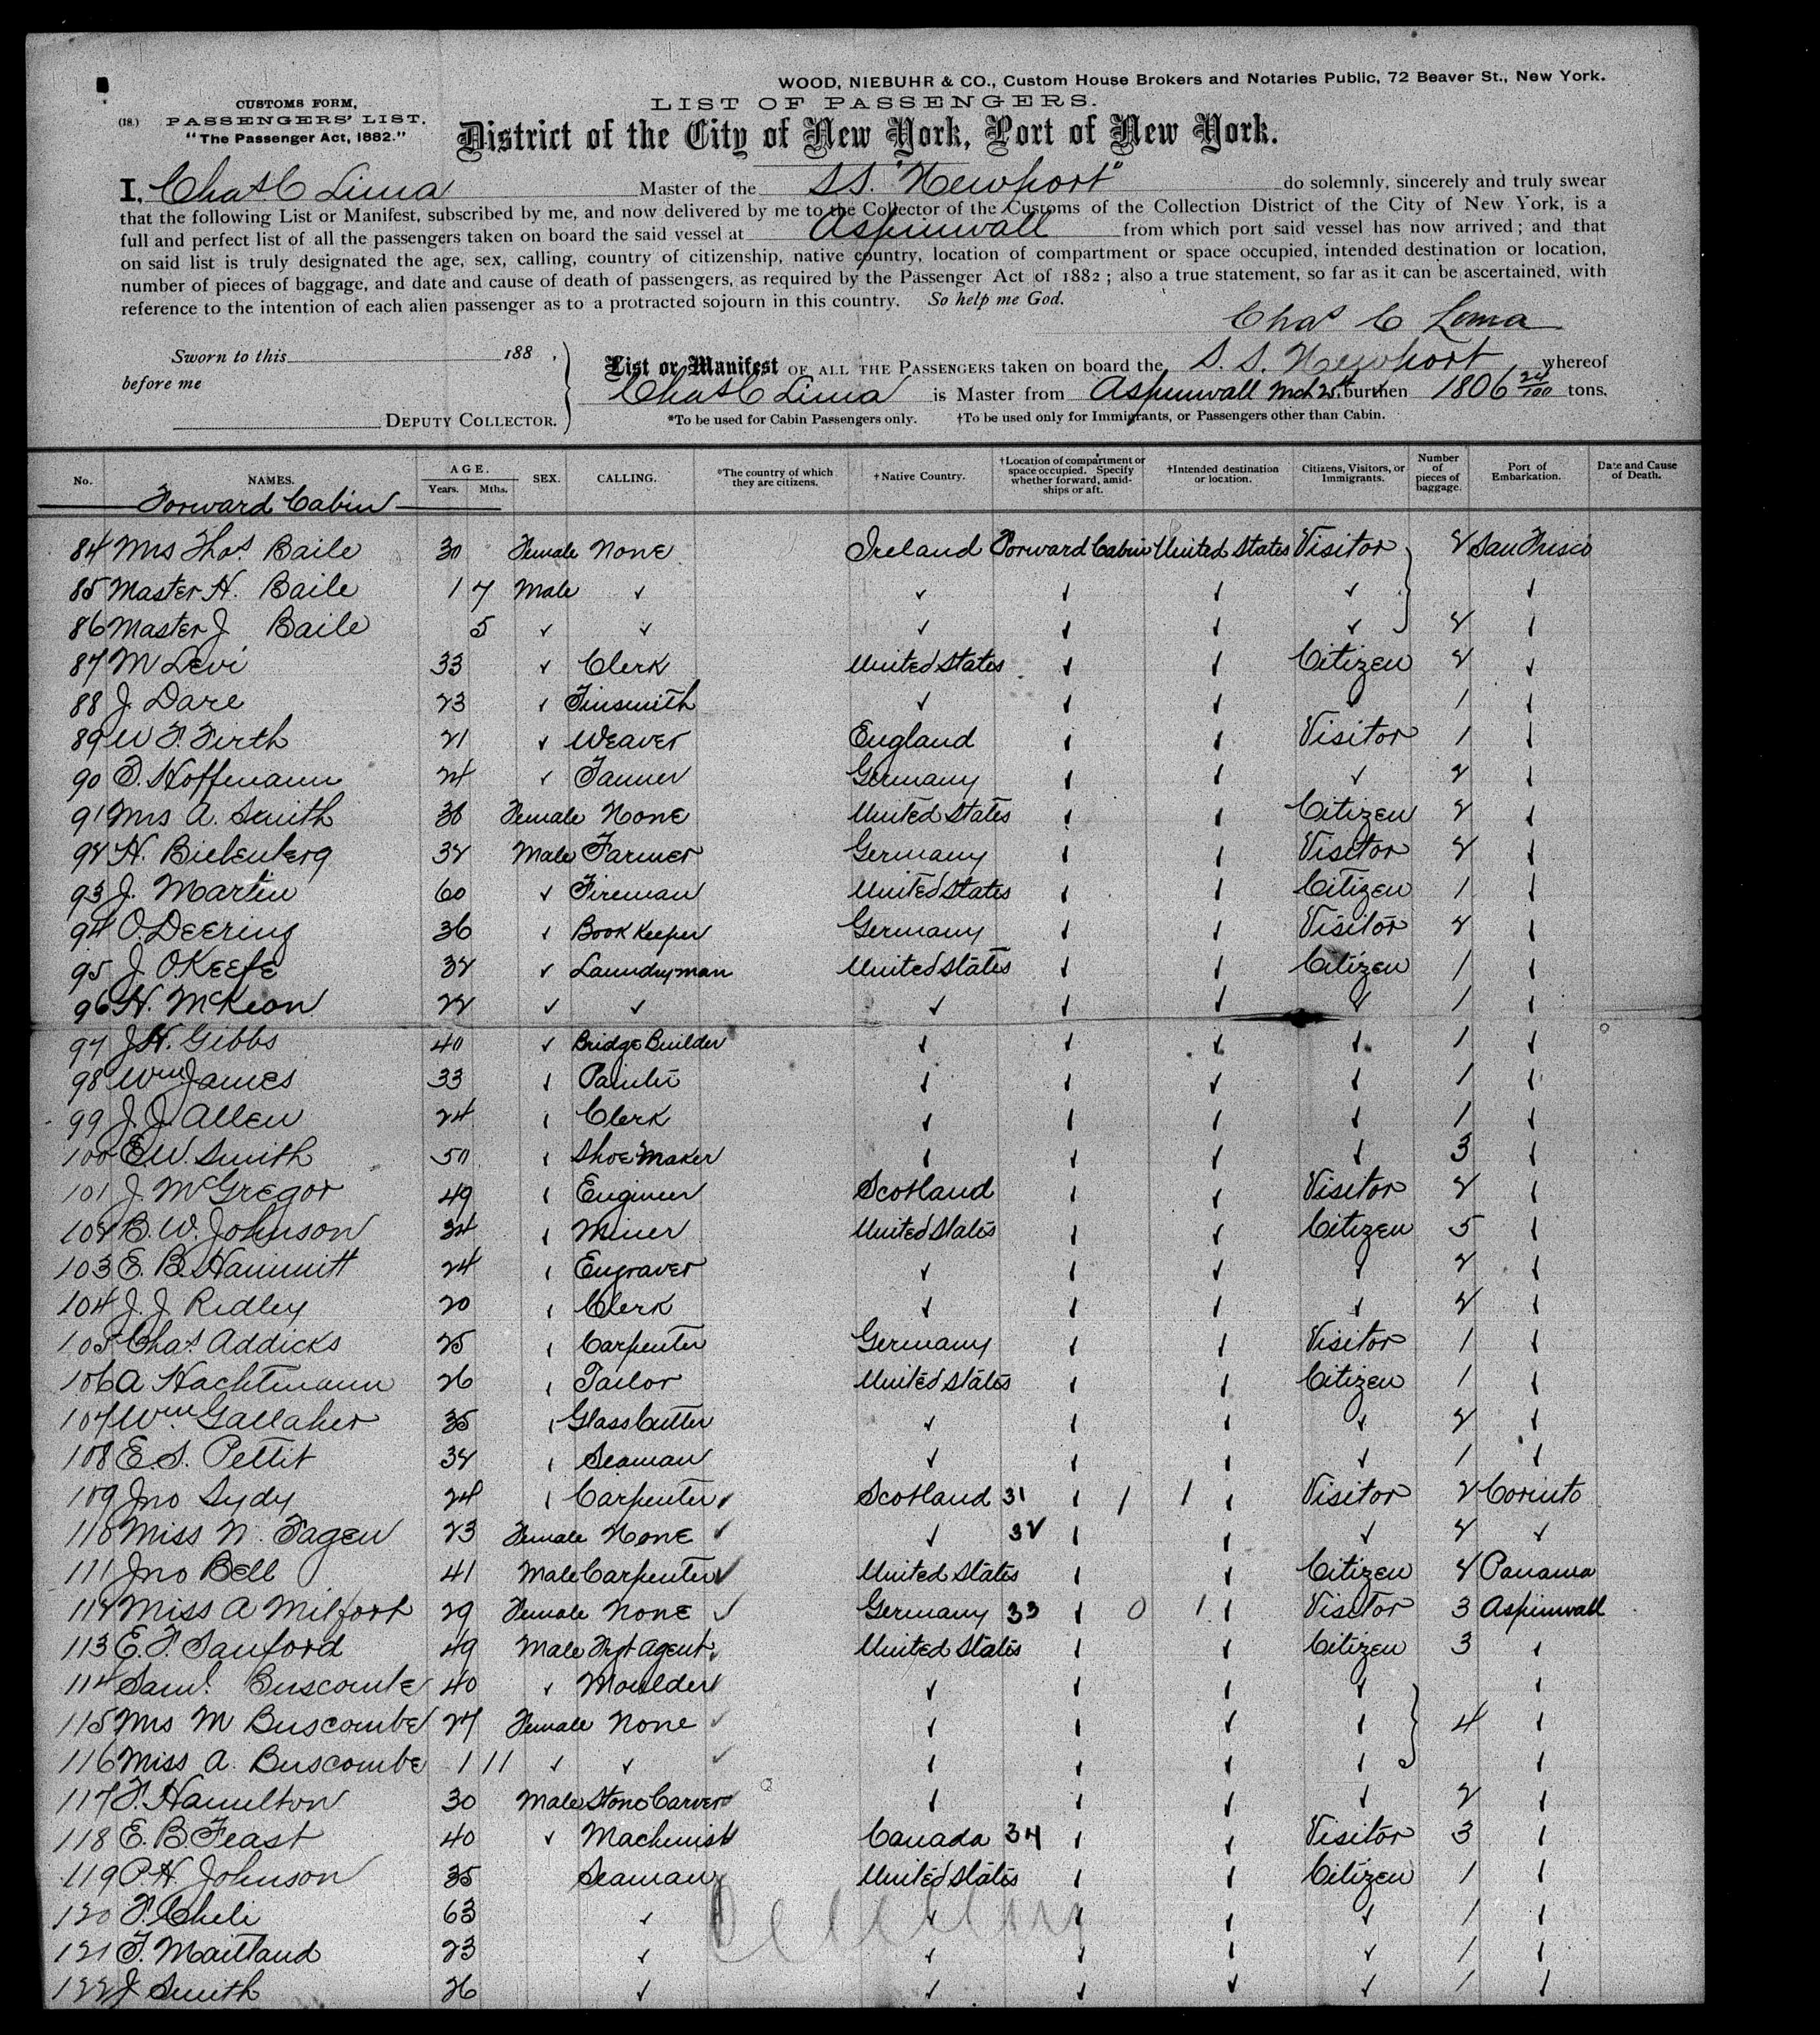 WOOD, NIEBUHR & CO., Custom House Brokers and Notaries Public, 72 Beaver St., New York.
LIST OF PASSENGERS.
(18.) CUSTOMS FORM, PASSENGERS' LIST. "The Passenger Act, 1882."
District of the City of New York, Port of New York.
I, Chas C Lima Master of the SS. "Newport" do solemnly, sincerely and truly swear
that the following List or Manifest, subscribed by me, and now delivered by me to the Collector of the Customs of the Collection District of the City of New York, is a
full and perfect list of all the passengers taken on board the said vessel at Aspinwall from which port said vessel has now arrived; and that
on said list is truly designated the age, sex, calling, country of citizenship, native country, location of compartment or space occupied, intended destination or location,
number of pieces of baggage, and date and cause of death of passengers, as required by the Passenger Act of 1882; also a true statement, so far as it can be ascertained, with
reference to the intention of each alien passenger as to a protracted sojourn in this country. So help me God.
Chas C Lima
Sworn to this 188 .
before me
DEPUTY COLLECTOR.
List or Manifest OF ALL THE PASSENGERS taken on board the S. S. Newport whereof
Chas C Lima is Master from Aspinwall Mch 25th burthen 1806 24/100 tons.
*To be used for Cabin Passengers only. †To be used only for Immigrants, or Passengers other than Cabin.
No. NAMES. AGE. Years. Mths. SEX. CALLING. *The country of which they are citizens. †Native Country. †Location of compartment or space occupied. Specify whether forward, amidships or aft. †Intended destination or location. Citizens, Visitors, or Immigrants. Number of pieces of baggage. Port of Embarkation. Date and Cause of Death.
Forward Cabin
84 Mrs Thos Baile 30 Female None Ireland Forward Cabin United States Visitor 2 San Frisco
85 Master H. Baile 1 7 Male ✓ ✓ ✓ ✓ ✓ ✓
86 Master J Baile 5 ✓ ✓ ✓ ✓ ✓ ✓ 2 ✓
87 M Levi 33 ✓ Clerk United States ✓ ✓ Citizen 2 ✓
88 J. Dare 23 ✓ Tinsmith ✓ ✓ ✓ ✓ 1 ✓
89 W F. Firth 21 ✓ Weaver England ✓ ✓ Visitor 1 ✓
90 T. Hoffmann 24 ✓ Tanner Germany ✓ ✓ ✓ 2 ✓
91 Mrs A. Smith 38 Female None United States ✓ ✓ Citizen 2 ✓
92 H. Bielenberg 32 Male Farmer Germany ✓ ✓ Visitor 2 ✓
93 J. Martin 60 ✓ Fireman United States ✓ ✓ Citizen 1 ✓
94 O. Deering 36 ✓ Book Keeper Germany ✓ ✓ Visitor 2 ✓
95 J OKeefe 32 ✓ Laundryman United States ✓ ✓ Citizen 1 ✓
96 H. McKeon 22 ✓ ✓ ✓ ✓ ✓ ✓ 1 ✓
97 J.H. Gibbs 40 ✓ Bridge Builder ✓ ✓ ✓ ✓ 1 ✓
98 Wm James 33 ✓ Painter ✓ ✓ ✓ ✓ 1 ✓
99 J. J. Allen 24 ✓ Clerk ✓ ✓ ✓ ✓ 1 ✓
100 E W. Smith 50 ✓ Shoe Maker ✓ ✓ ✓ ✓ 3 ✓
101 J. McGregor 49 ✓ Engineer Scotland ✓ ✓ Visitor 2 ✓
102 B. W. Johnson 34 ✓ Miner United States ✓ ✓ Citizen 5 ✓
103 E. B. Hammitt 24 ✓ Engraver ✓ ✓ ✓ ✓ 2 ✓
104 J. J. Ridley 20 ✓ Clerk ✓ ✓ ✓ ✓ 2 ✓
105 Chas. Addicks 25 ✓ Carpenter Germany ✓ ✓ Visitor 1 ✓
106 A Hachtmann 26 ✓ Tailor United States ✓ ✓ Citizen 1 ✓
107 Wm Gallaher 35 ✓ Glass Cutter ✓ ✓ ✓ ✓ 2 ✓
108 E. S. Pettit 32 ✓ Seaman ✓ ✓ ✓ ✓ 1 ✓
109 Jno Sydy 24 ✓ Carpenter ✓ Scotland 31 ✓ 1 1 ✓ Visitor 2 Corinto
110 Miss N. Fagen 23 Female None ✓ ✓ 32 ✓ ✓ ✓ 2 ✓
111 Jno Bell 41 Male Carpenter ✓ United States ✓ ✓ Citizen 2 Panama
112 Miss A Milfort 29 Female None ✓ Germany 33 ✓ 0 1 ✓ Visitor 3 Aspinwall
113 E. F. Sanford 49 Male Frt Agent ✓ United States ✓ ✓ Citizen 3 ✓
114 Saml. Buscombe 40 ✓ Moulder ✓ ✓ ✓ ✓ ✓ ✓
115 Mrs M Buscombe 27 Female None ✓ ✓ ✓ ✓ ✓ 4 ✓
116 Miss A. Buscombe 1 11 ✓ ✓ ✓ ✓ ✓ ✓ ✓ ✓
117 F. Hamilton 30 Male Stone Carver ✓ ✓ ✓ ✓ ✓ 2 ✓
118 E. B Feast 40 ✓ Machinist ✓ Canada 34 ✓ ✓ Visitor 3 ✓
119 P. H. Johnson 35 Seaman United States ✓ ✓ Citizen 1 ✓
120 F. Cheli 63 ✓ ✓ ✓ ✓ ✓ 1 ✓
121 F. Maitland 23 ✓ ✓ ✓ ✓ ✓ 1 ✓
122 J Smith 26 ✓ ✓ ✓ ✓ ✓ 1 ✓